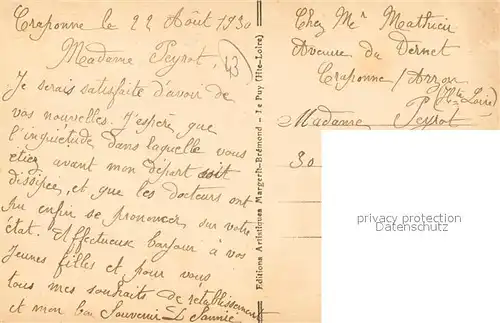 Craponne le 22 Août 1930
Madame Peyrot,
43
Je serais satisfaite d'avoir de
vos nouvelles. J'espère que
l'inquiétude dans laquelle vous
étiez avant mon départ soit
dissipée, et que les docteurs ont
pu enfin se prononcer sur votre
état. Affectueux bonjour à vos
jeunes filles et pour vous
tous mes souhaits de rétablissement
et mon bon Souvenir
Editions Artistiques Margerit-Brémond - Le Puy (Hte-Loire)
Chez Mer Mathieu
Avenue du Dernet
Craponne / Arzon
(Hte Loire)
Madame Peyrot
30
privacy protection
Datenschutz